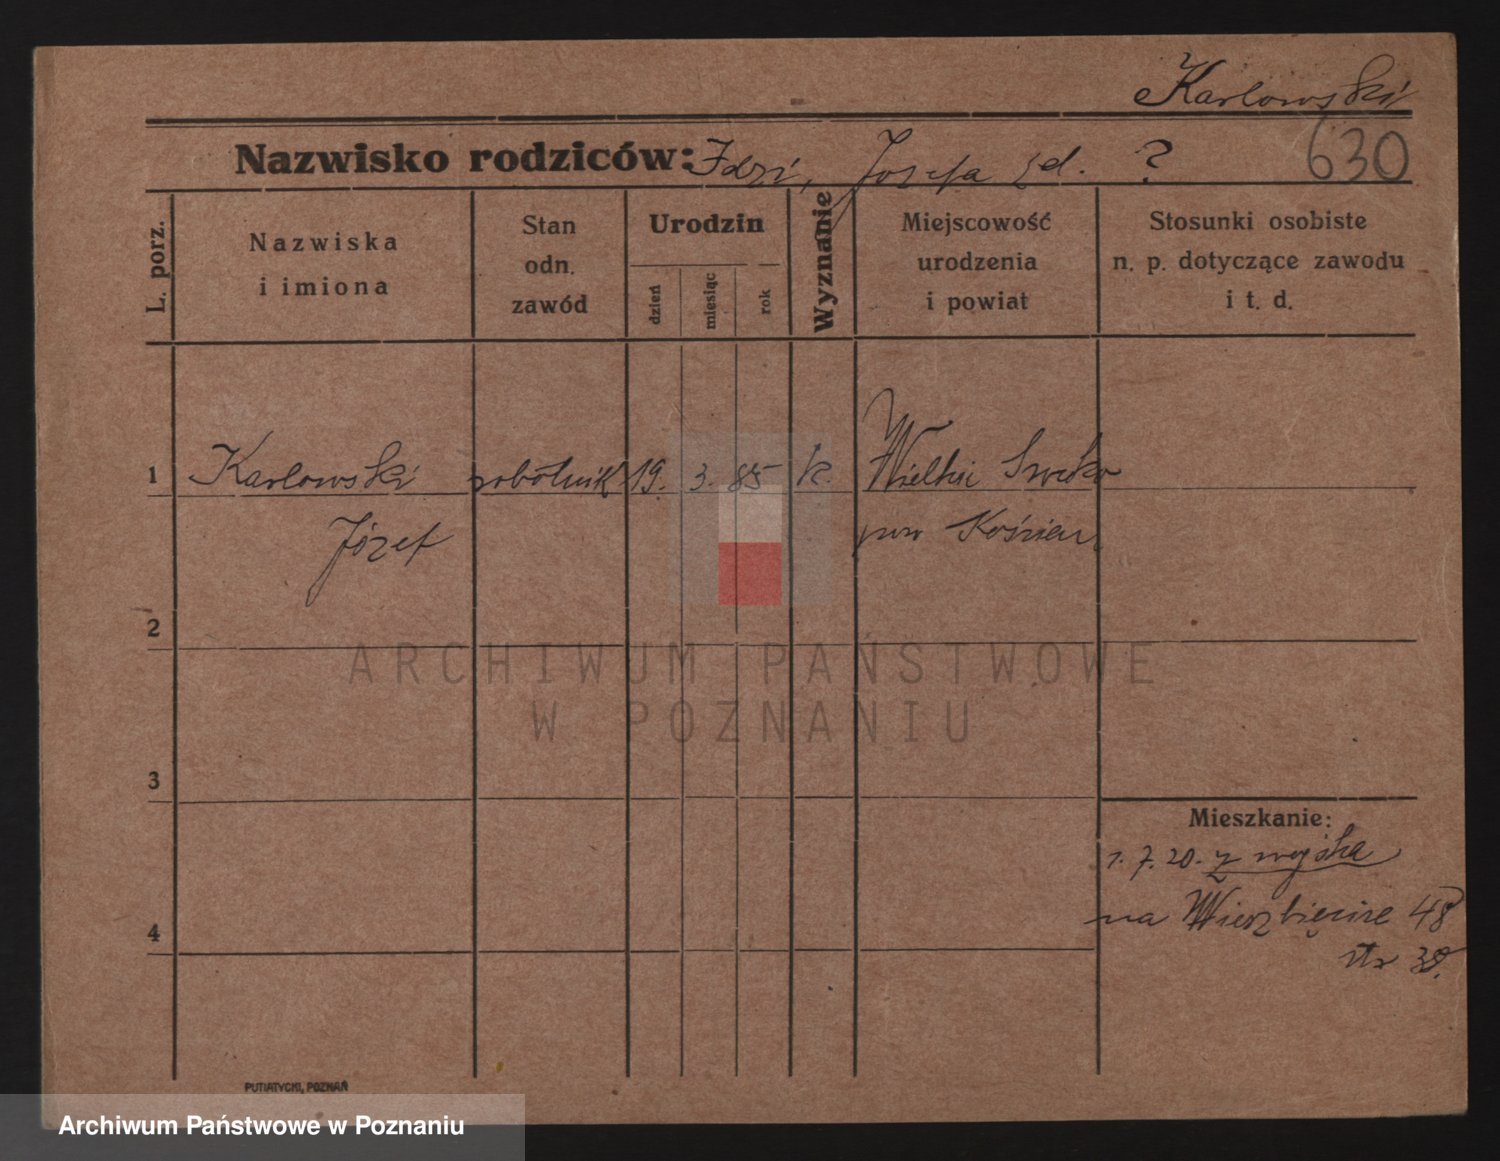 Karlowski
630
Nazwisko rodziców: Idzi, Józefa zd. ?
L. porz.
Nazwiska
i imiona
Stan
odn.
zawód
Urodzin
dzień
miesiąc
rok
Wyznanie
Miejscowość
urodzenia
i powiat
Stosunki osobiste
n. p. dotyczące zawodu
i t. d.
1 Karlowski robotnik 19. 3. 85 k. Wielkie
Józef pow Kościan
2
ARCHIWUM PAŃSTWOWE
W POZNANIU
3
Mieszkanie:
1. 7. 20. z wojska
na Wierzbięcice 48
4
38.
PUTIATYCKI, POZNAŃ
Archiwum Państwowe w Poznaniu